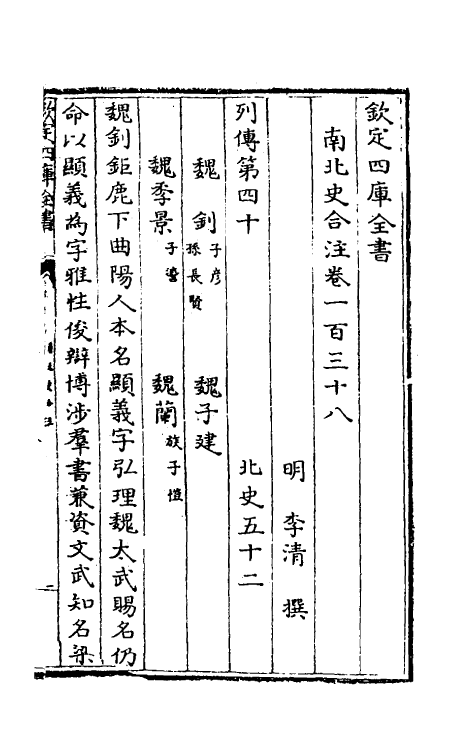 欽定四庫全書
南北史合注卷一百三十八
明 李清 撰
列傳第四十 北史五十二
魏釗 子彥 孫長賢 魏子建
魏季景 子澹 魏蘭 族子愷
魏釗鉅鹿下曲陽人本名顯義字弘理魏太武賜名仍
命以顯義為字雅性俊辯博涉羣書兼資文武知名梁
欽定四庫全書